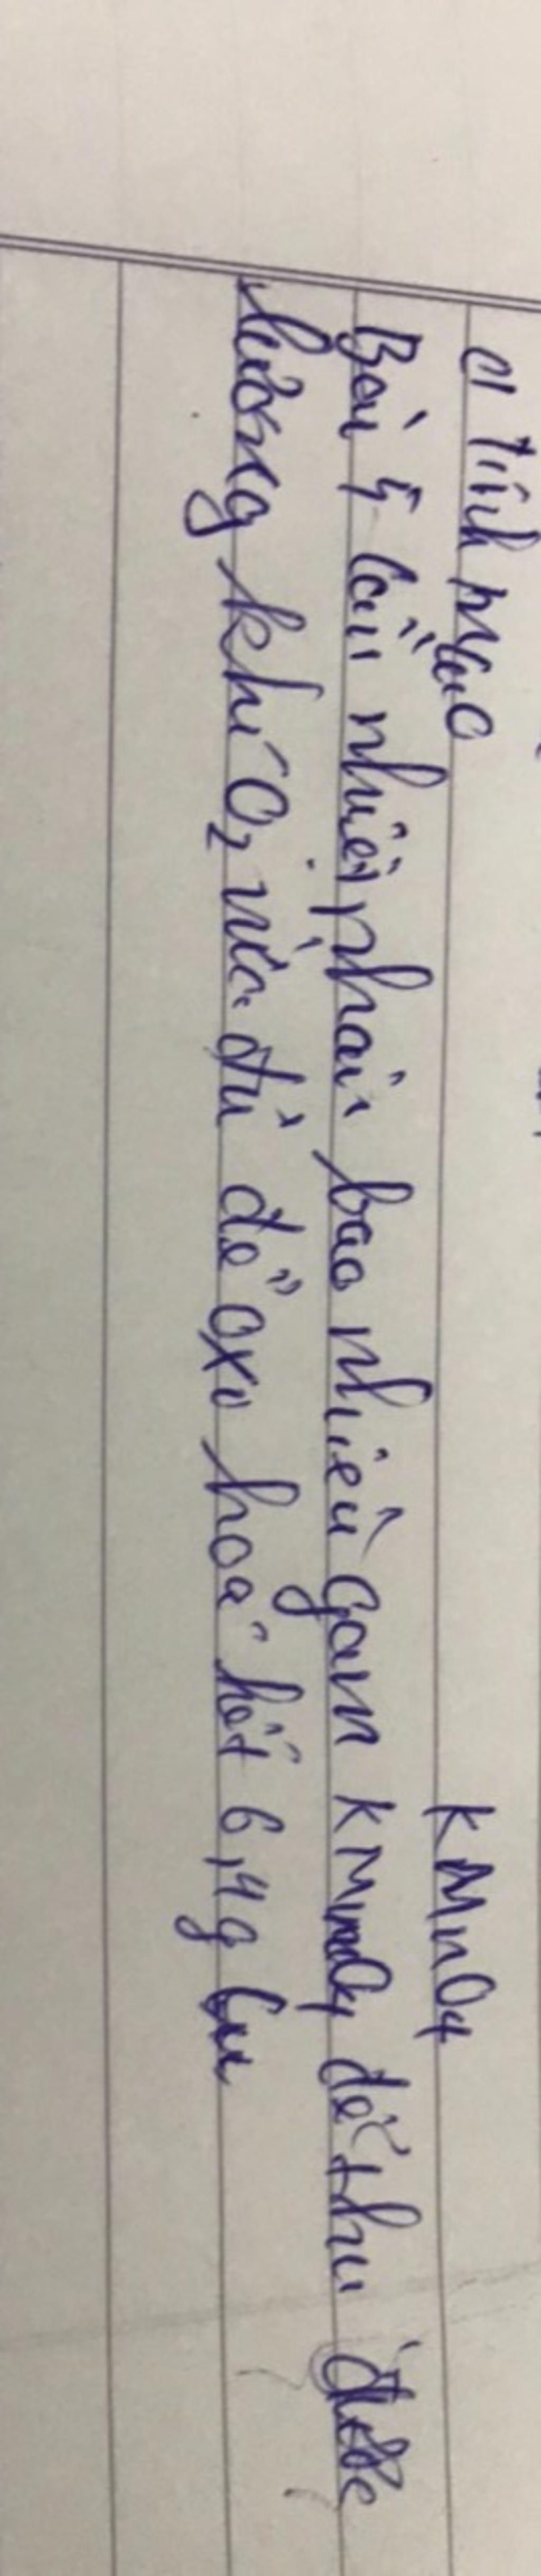 a tính mCuO
KMnO4
Bài 4 Cần nhiệt phân bao nhiêu gam KMnO4 để thu được
lượng khí O2 vừa đủ để oxo hoá hết 6,4g Cu